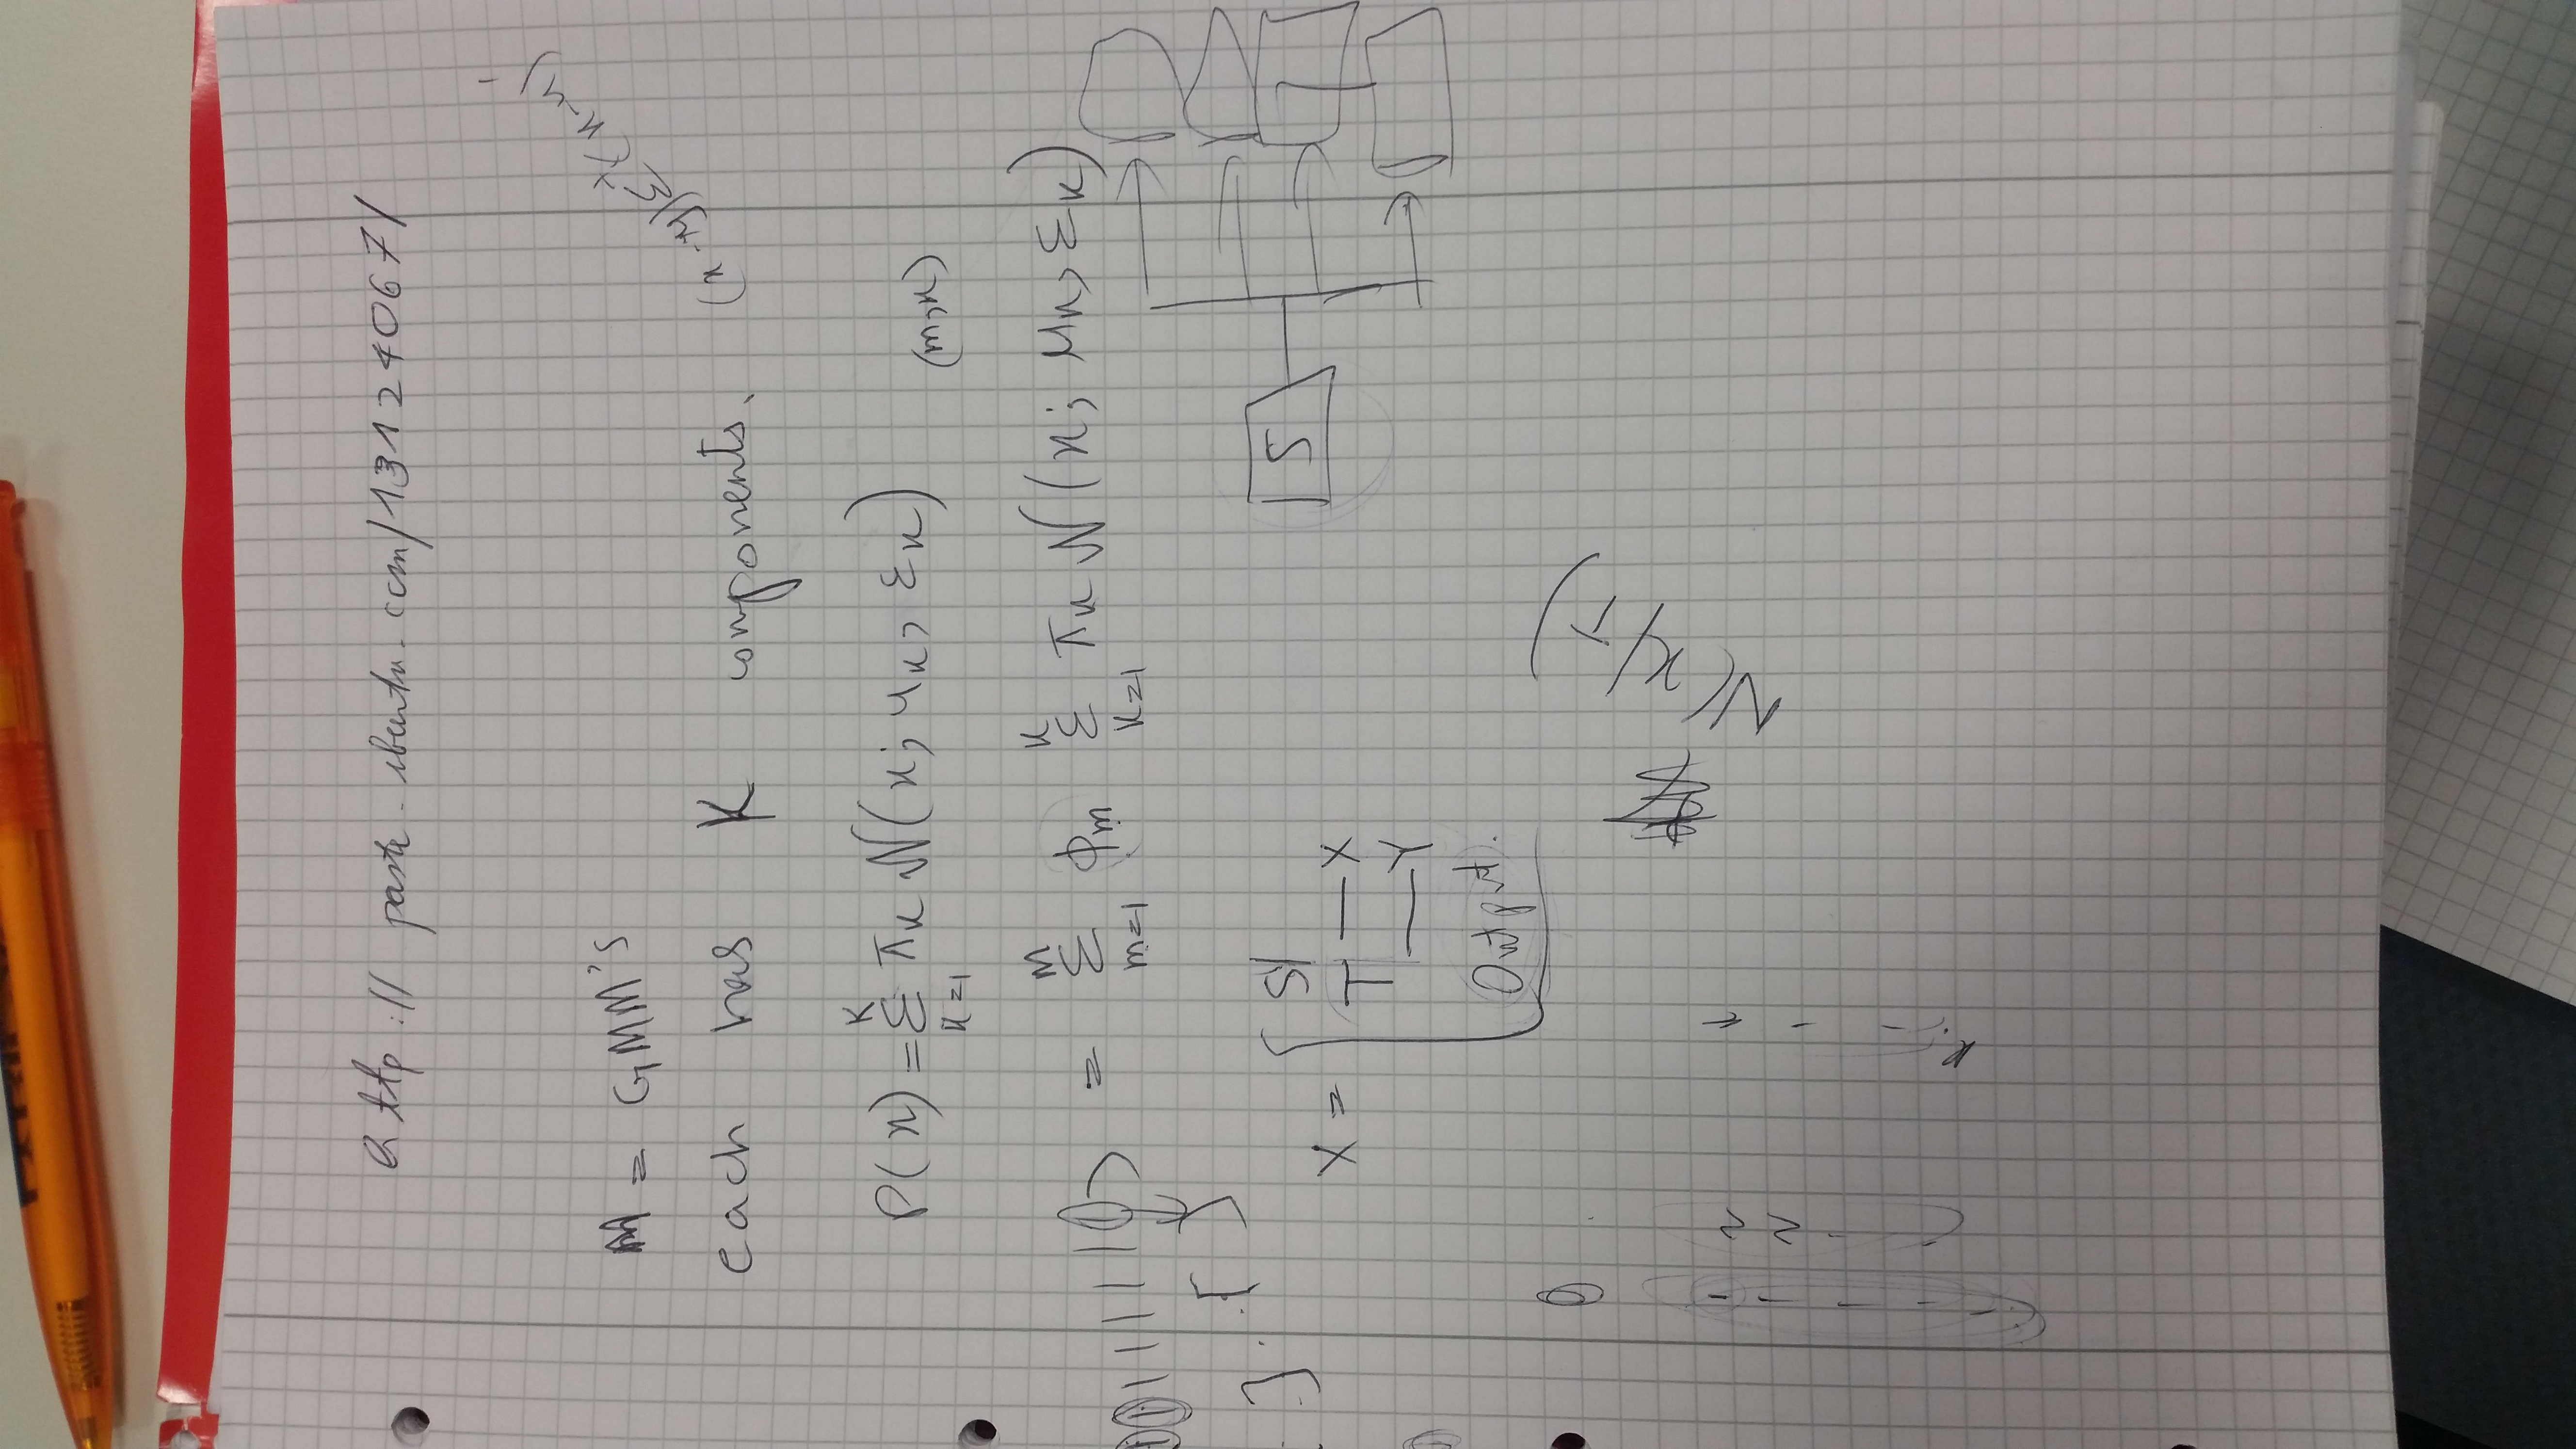 http://paste.ubuntu.com/13124067/
M = GMM's
each has K components.
(x-μ)Σ⁻¹(x-μ)
P(x) = Σ_{k=1}^{K} π_k N(x; μ_k, Σ_k)
(m,k)
= Σ_{m=1}^{M} φ_m Σ_{k=1}^{K} π_k N(x; μ_k, Σ_k)
S
X =
T — X
— Y
Output.
0
N(x/T)
2
2